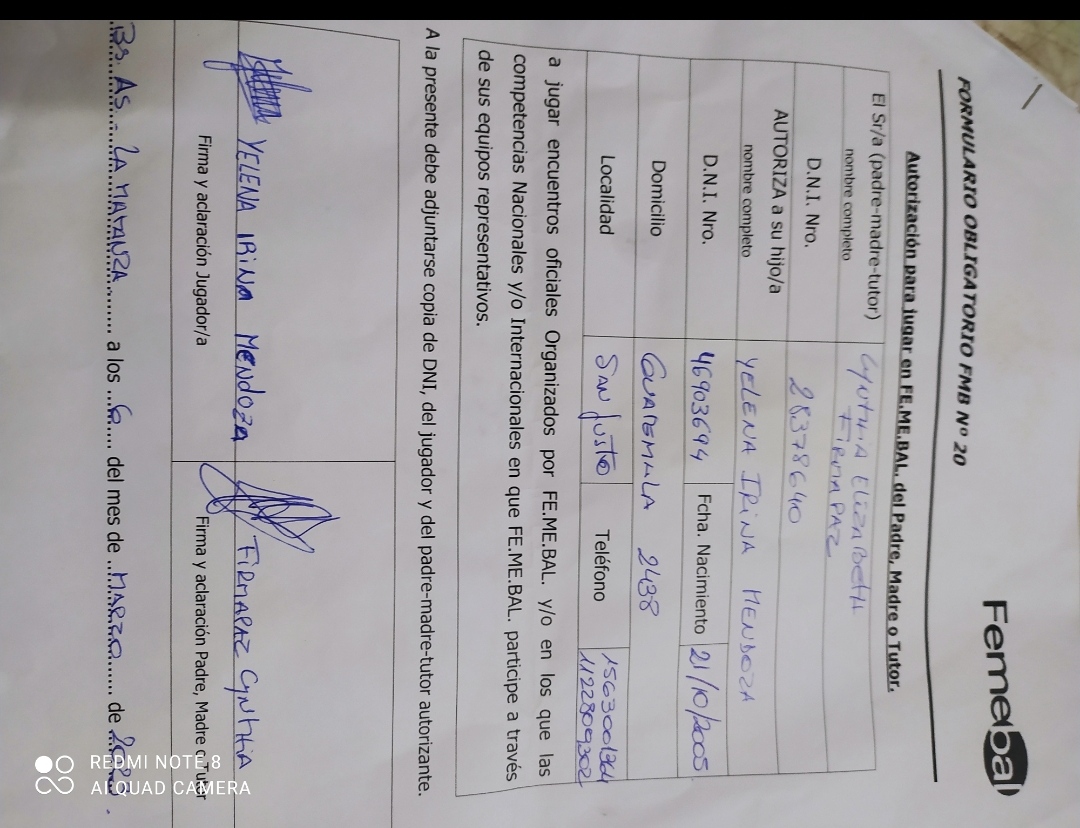 Femebal
FORMULARIO OBLIGATORIO FMB Nº 20
Autorización para jugar en FE.ME.BAL. del Padre, Madre o Tutor.
El Sr/a (padre-madre-tutor) nombre completo Cynthia Elizabeth FIRMAPAZ
D.N.I. Nro. 28378640
AUTORIZA a su hijo/a nombre completo YELENA IRINA MENDOZA
D.N.I. Nro. 46903694 Fcha. Nacimiento 21/10/2005
Domicilio GUATEMALA 2438
Localidad SAN JUSTO Teléfono 1122809302
a jugar encuentros oficiales Organizados por FE.ME.BAL. y/o en los que las
competencias Nacionales y/o Internacionales en que FE.ME.BAL. participe a través
de sus equipos representativos.
A la presente debe adjuntarse copia de DNI, del jugador y del padre-madre-tutor autorizante.
YELENA IRINA MENDOZA FIRMAPAZ Cynthia
Firma y aclaración Jugador/a Firma y aclaración Padre, Madre o Tutor
Bs. As. - LA MATANZA a los 6 del mes de MARZO de
REDMI NOTE 8
AI QUAD CAMERA